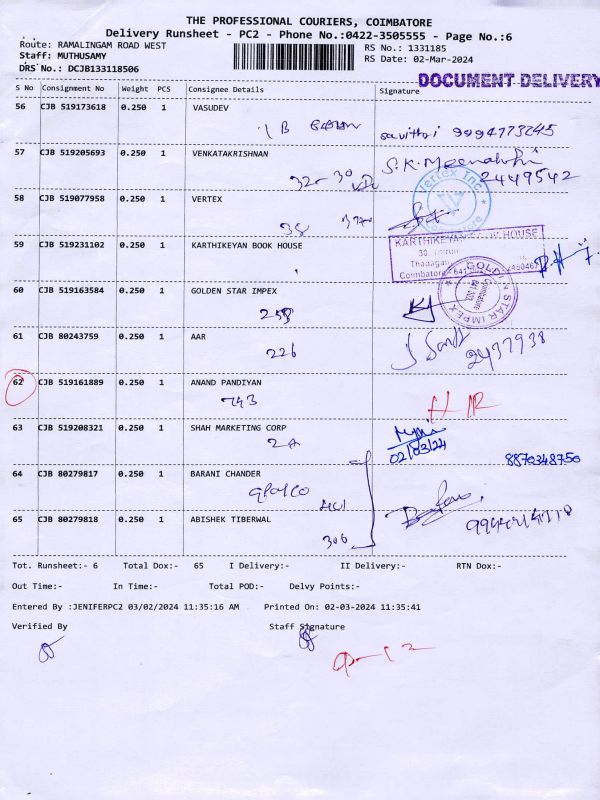 THE PROFESSIONAL COURIERS, COIMBATORE
Delivery Runsheet - PC2 - Phone No.:0422-3505555 - Page No.:6
Route: RAMALINGAM ROAD WEST
RS No.: 1331185
Staff: MUTHUSAMY
RS Date: 02-Mar-2024
DRS No.: DCJB133118506
DOCUMENT DELIVERY
S No Consignment No Weight PCS Consignee Details Signature
56 CJB 519173618 0.250 1 VASUDEV
1 B
savithri 9994773245
57 CJB 519205693 0.250 1 VENKATAKRISHNAN
S.K. Meenakshi
32-30
2449542
Vertex Inc
58 CJB 519077958 0.250 1 VERTEX
38
59 CJB 519231102 0.250 1 KARTHIKEYAN BOOK HOUSE
KARTHIKEYAN BOOK HOUSE
Coimbatore
60 CJB 519163584 0.250 1 GOLDEN STAR IMPEX
GOLDEN STAR IMPEX
Coimbatore
258
61 CJB 80243759 0.250 1 AAR
226
2437938
62 CJB 519161889 0.250 1 ANAND PANDIYAN
743
63 CJB 519208321 0.250 1 SHAH MARKETING CORP
2A
02/03/24
8870348750
64 CJB 80279817 0.250 1 BARANI CHANDER
65 CJB 80279818 0.250 1 ABISHEK TIBERWAL
306
Tot. Runsheet:- 6 Total Dox:- 65 I Delivery:- II Delivery:- RTN Dox:-
Out Time:- In Time:- Total POD:- Delvy Points:-
Entered By :JENIFERPC2 03/02/2024 11:35:16 AM Printed On: 02-03-2024 11:35:41
Verified By Staff Signature